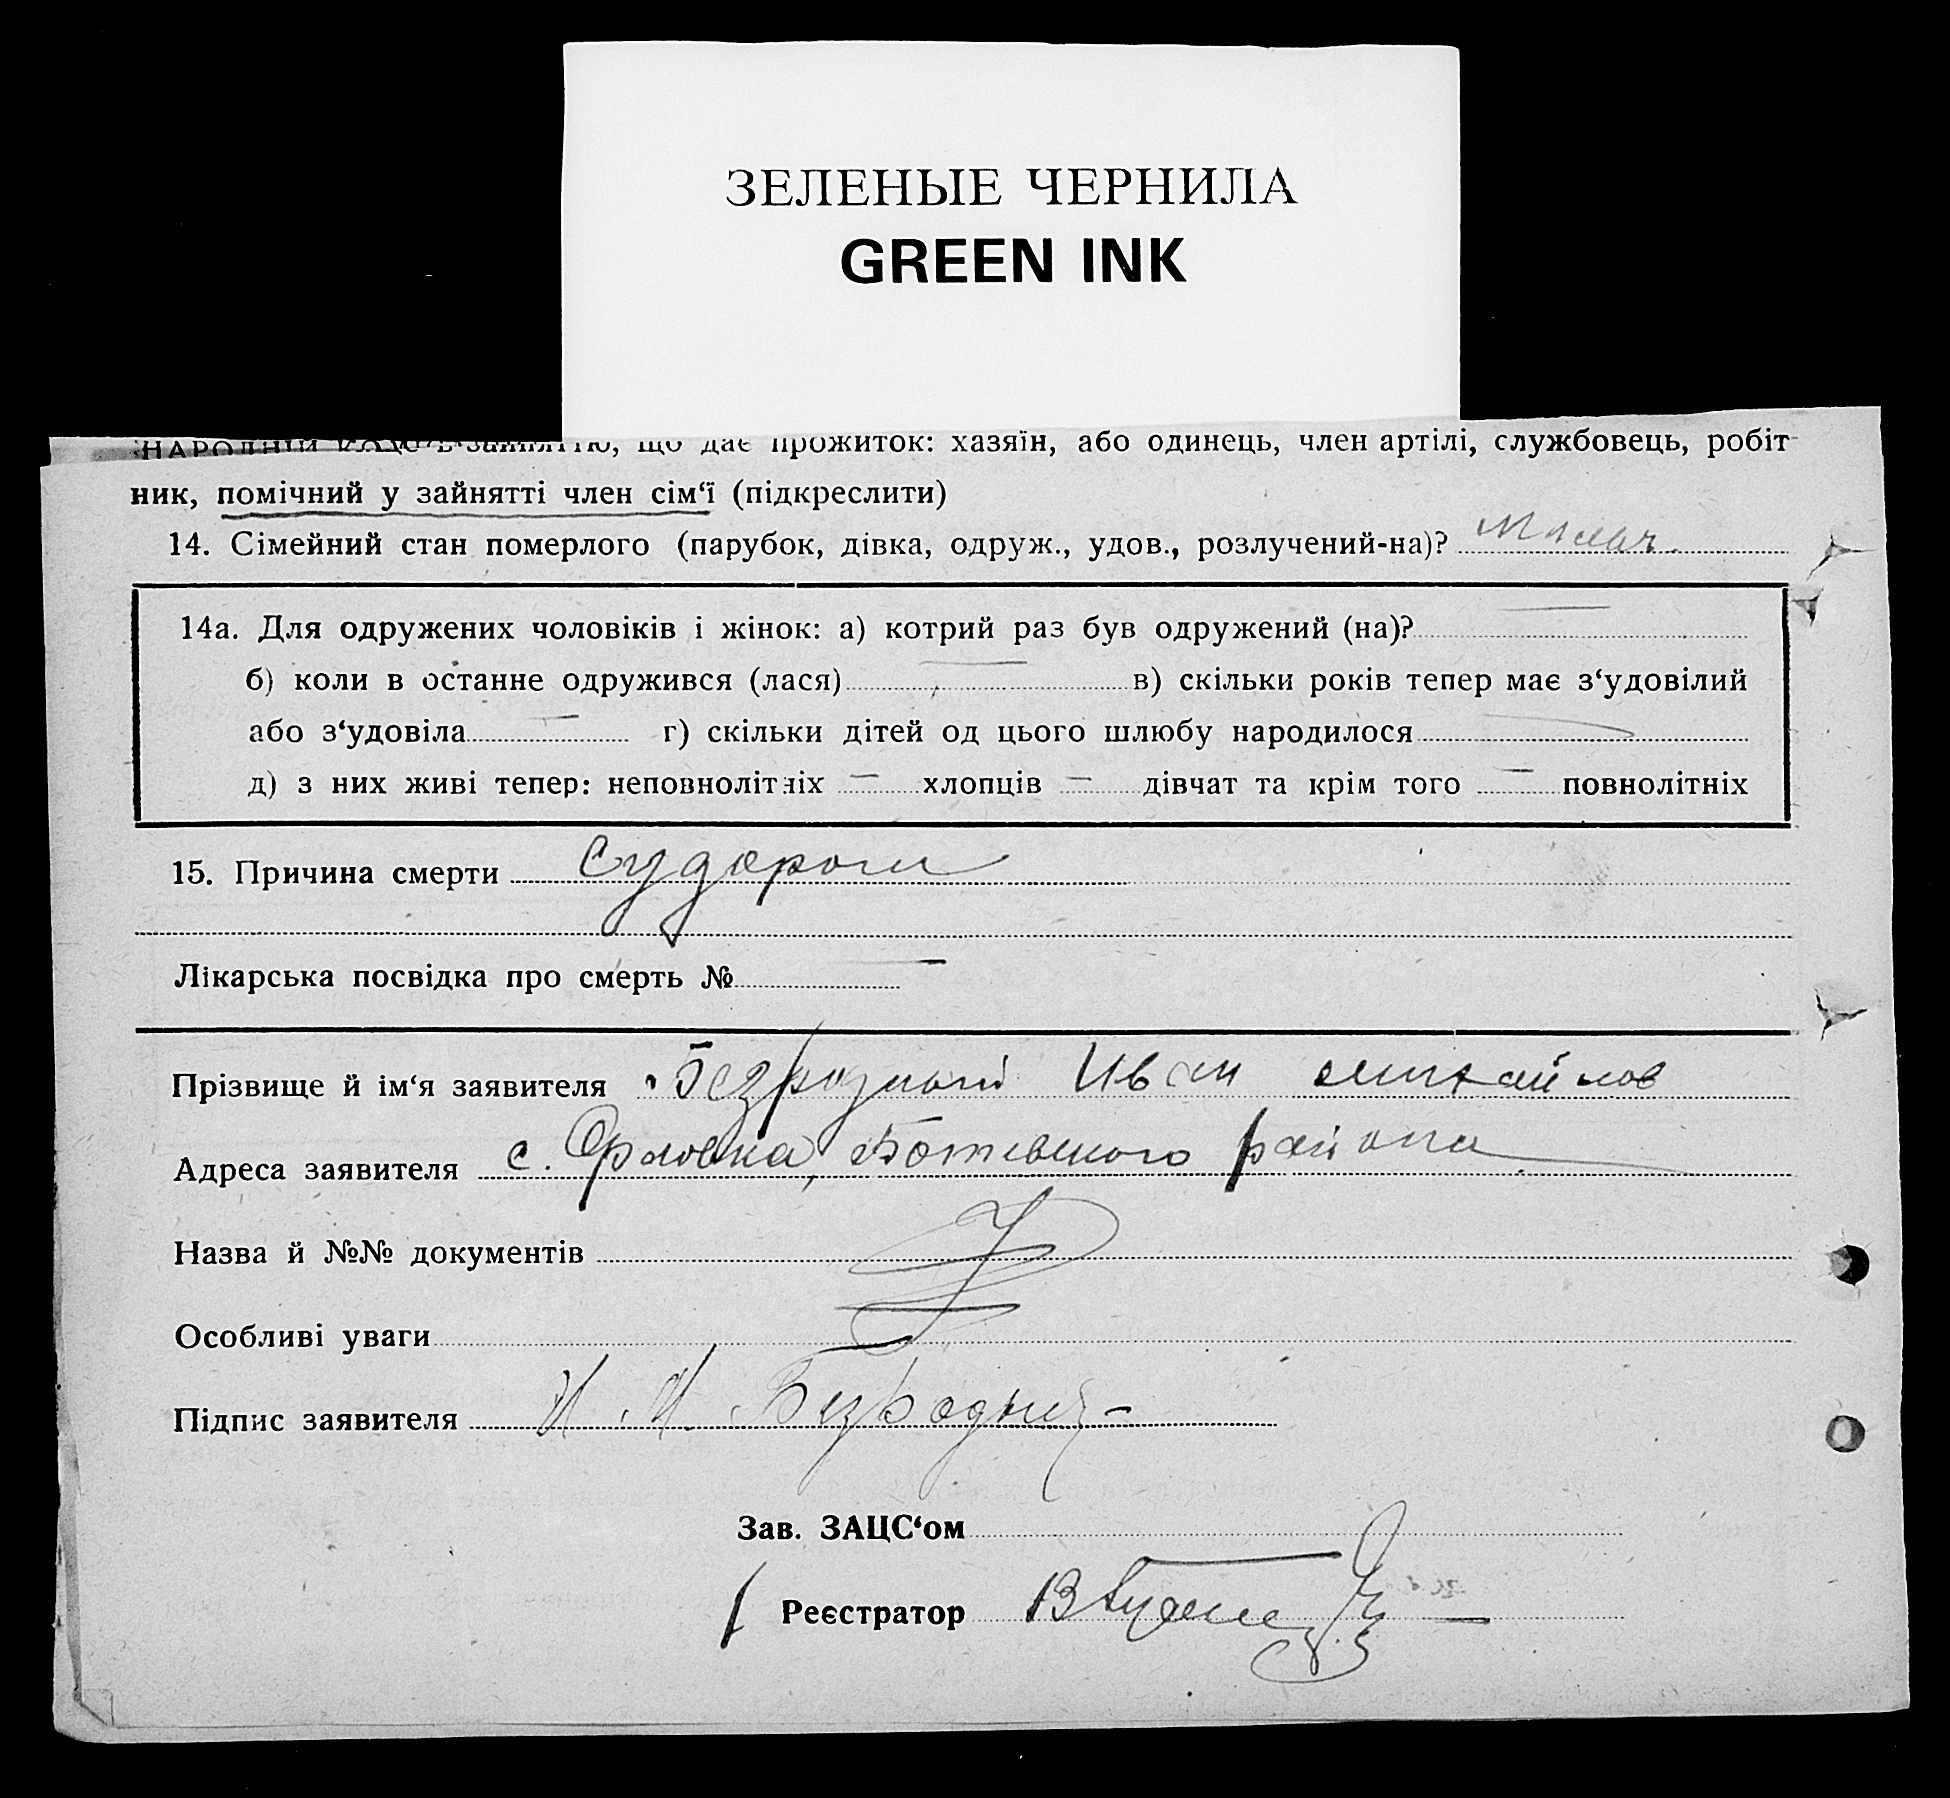 ЗЕЛЕНЫЕ ЧЕРНИЛА
GREEN INK
що дає прожиток: хазяїн, або одинець, член артілі, службовець, робіт-
ник, помічний у зайнятті член сім‘ї (підкреслити)
14. Сімейний стан померлого (парубок, дівка, одруж., удов., розлучений-на)?
14а. Для одружених чоловіків і жінок: а) котрий раз був одружений (на)?
б) коли в останне одружився (лася) в) скільки років тепер має з‘удовілий
або з‘удовіла г) скільки дітей од цього шлюбу народилося
д) з них живі тепер: неповнолітніх — хлопців — дівчат та крім того — повнолітніх
15. Причина смерти Судороги
Лікарська посвідка про смерть № —
Прізвище й ім‘я заявителя Безродный Иван Михайлов
Адреса заявителя с. Орловка, Ботевского района
Назва й №№ документів
Особливі уваги
Підпис заявителя И. М. Безродный
Зав. ЗАЦС‘ом
Реєстратор